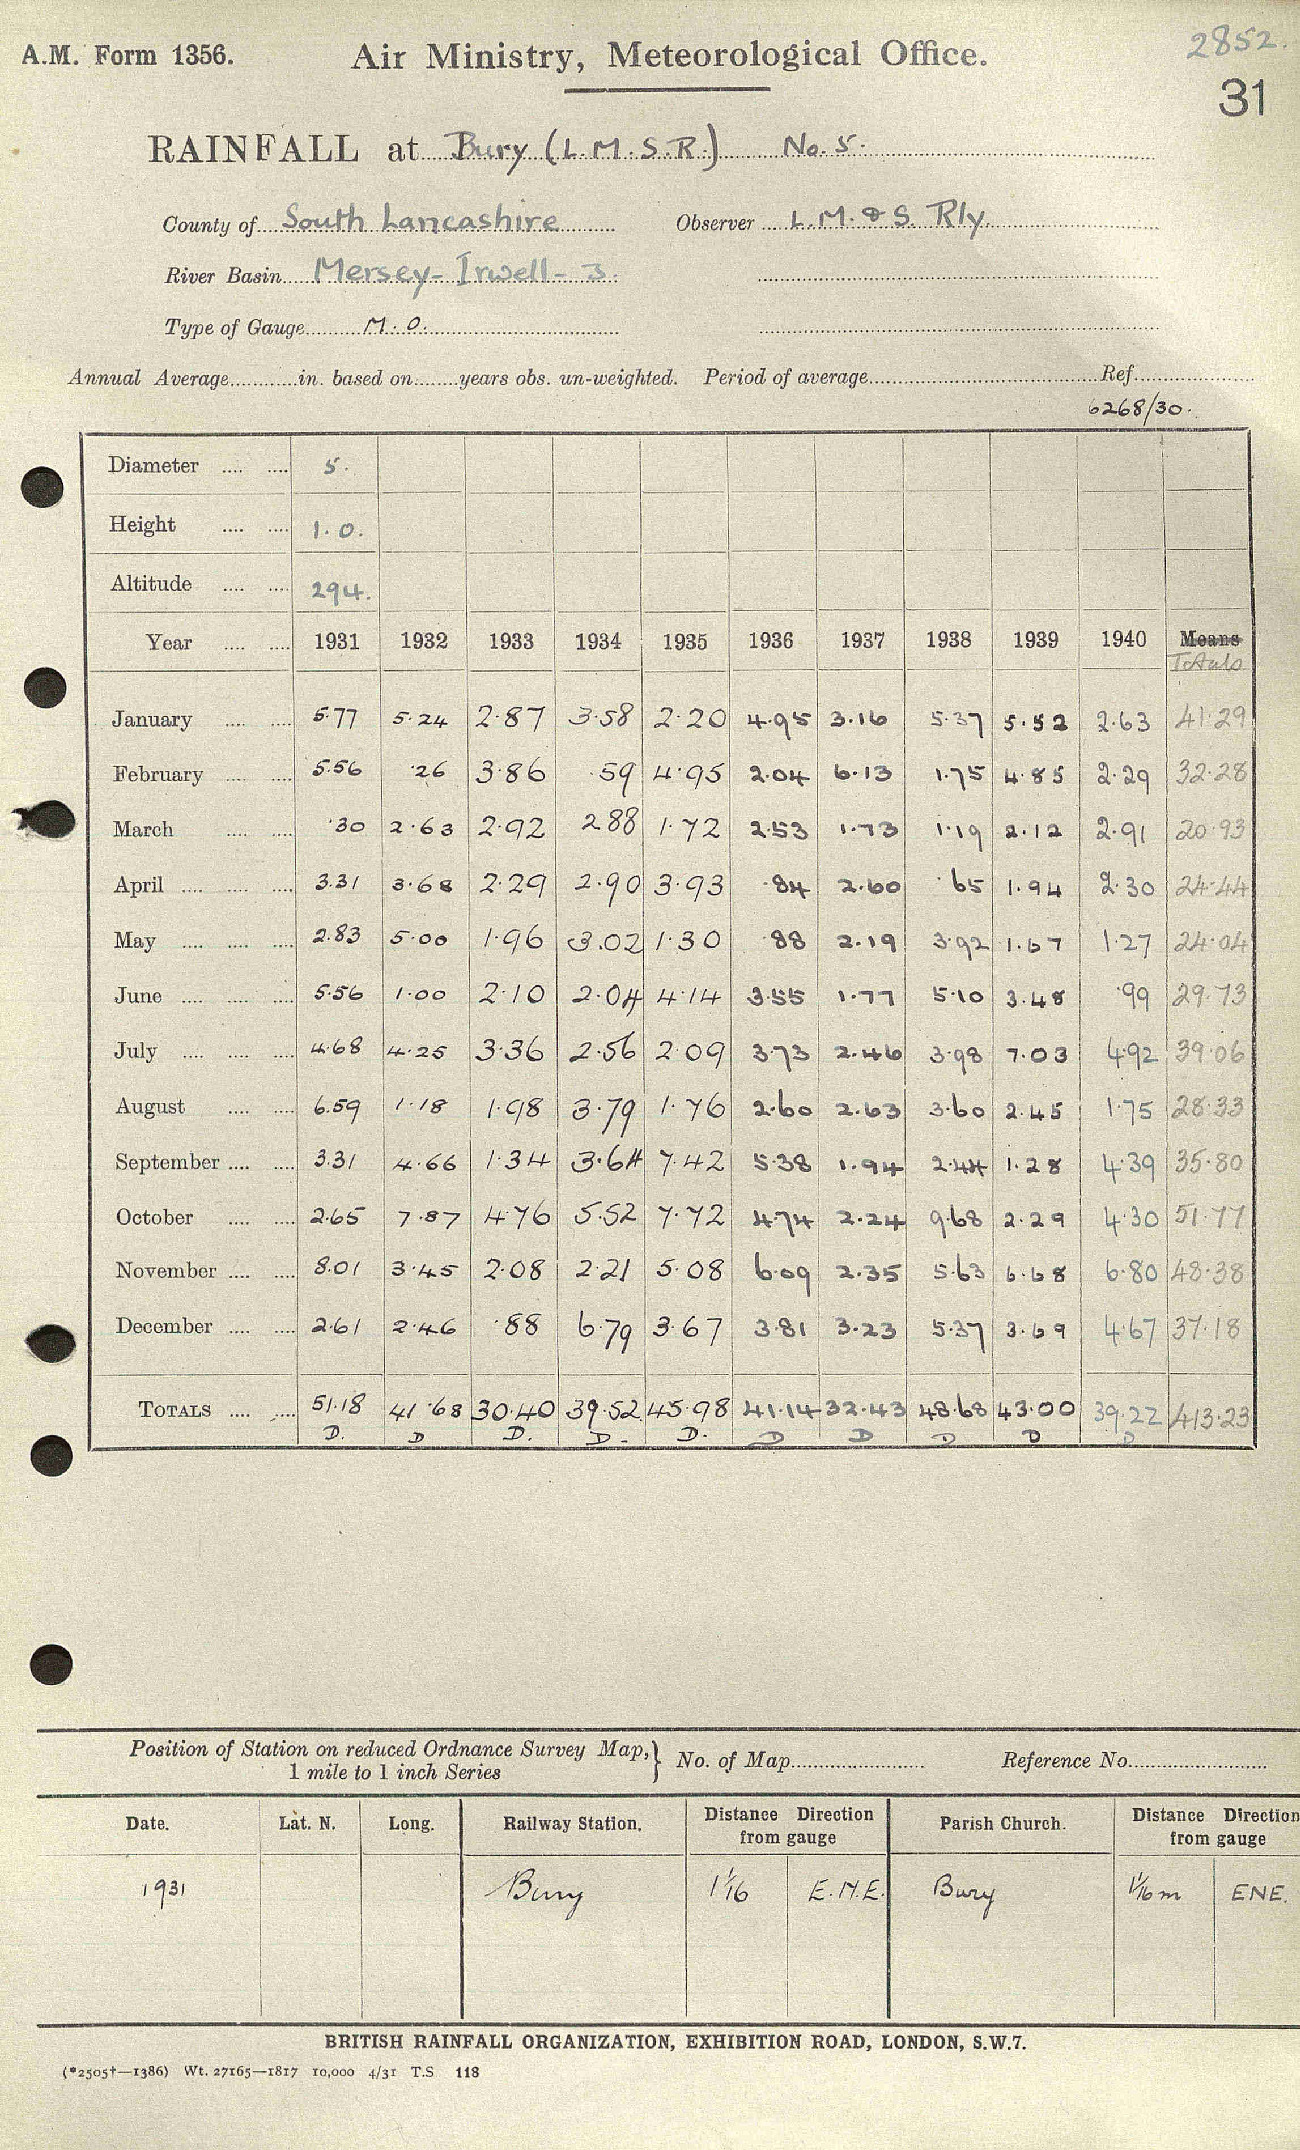 A.M. Form 1356. Air Ministry, Meteorological Office. 2852.
31
RAINFALL at Bury (L.M.S.R.) No. 5.
County of South Lancashire Observer L.M. & S. Rly.
River Basin Mersey - Irwell - 3.
Type of Gauge M.O.
Annual Average in. based on years obs. un-weighted. Period of average Ref.
6268/30.
Diameter 5.
Height 1.0.
Altitude 294.
Year 1931 1932 1933 1934 1935 1936 1937 1938 1939 1940 Means
Totals
January 5.77 5.24 2.87 3.58 2.20 4.95 3.16 5.37 5.52 2.63 41.29
February 5.56 .26 3.86 .59 4.95 2.04 6.13 1.75 4.85 2.29 32.28
March .30 2.63 2.92 2.88 1.72 2.53 1.73 1.19 2.12 2.91 20.93
April 3.31 3.68 2.29 2.90 3.93 .84 2.60 .65 1.94 2.30 24.44
May 2.83 5.00 1.96 3.02 1.30 .88 2.19 3.92 1.67 1.27 24.04
June 5.56 1.00 2.10 2.04 4.14 3.55 1.77 5.10 3.48 .99 29.73
July 4.68 4.25 3.36 2.56 2.09 3.73 2.46 3.98 7.03 4.92 39.06
August 6.59 1.18 1.98 3.79 1.76 2.60 2.63 3.60 2.45 1.75 28.33
September 3.31 4.66 1.34 3.64 7.42 5.38 1.94 2.44 1.28 4.39 35.80
October 2.65 7.87 4.76 5.52 7.72 4.74 2.24 9.68 2.29 4.30 51.77
November 8.01 3.45 2.08 2.21 5.08 6.09 2.35 5.63 6.68 6.80 48.38
December 2.61 2.46 .88 6.79 3.67 3.81 3.23 5.37 3.69 4.67 37.18
TOTALS 51.18 41.68 30.40 39.52 45.98 41.14 32.43 48.68 43.00 39.22 413.23
D. D D. D. D. D D D D D
Position of Station on reduced Ordnance Survey Map,} No. of Map Reference No.
1 mile to 1 inch Series
Date. Lat. N. Long. Railway Station. Distance Direction Parish Church. Distance Direction
from gauge from gauge
1931 Bury 1 1/16 E.N.E. Bury 1 1/16 m ENE.
BRITISH RAINFALL ORGANIZATION, EXHIBITION ROAD, LONDON, S.W.7.
(*2505†—1386) Wt. 27165—1817 10,000 4/31 T.S 118